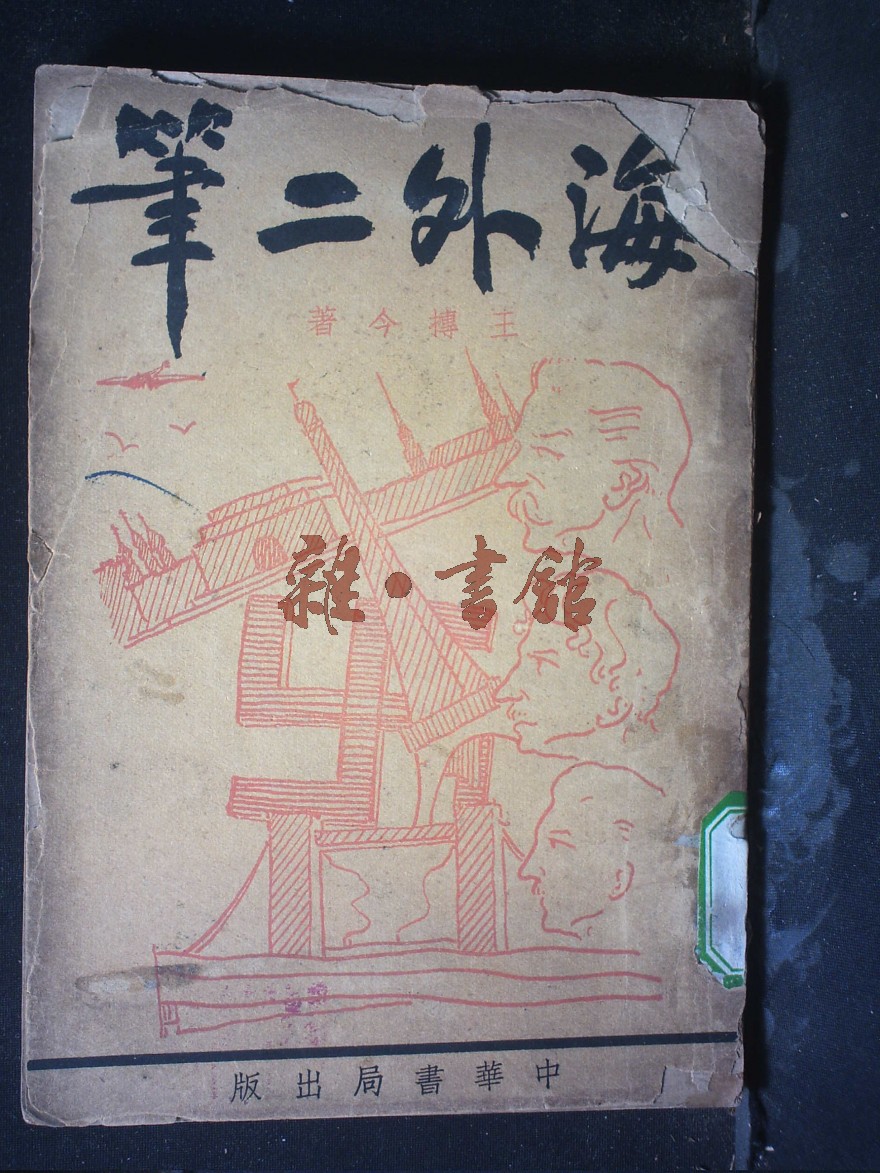 海外二筆
王摶今著
雜·書館
中華書局出版